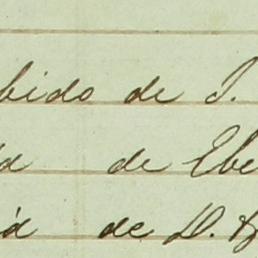 bido de J.
id de Ebe
id de D. H